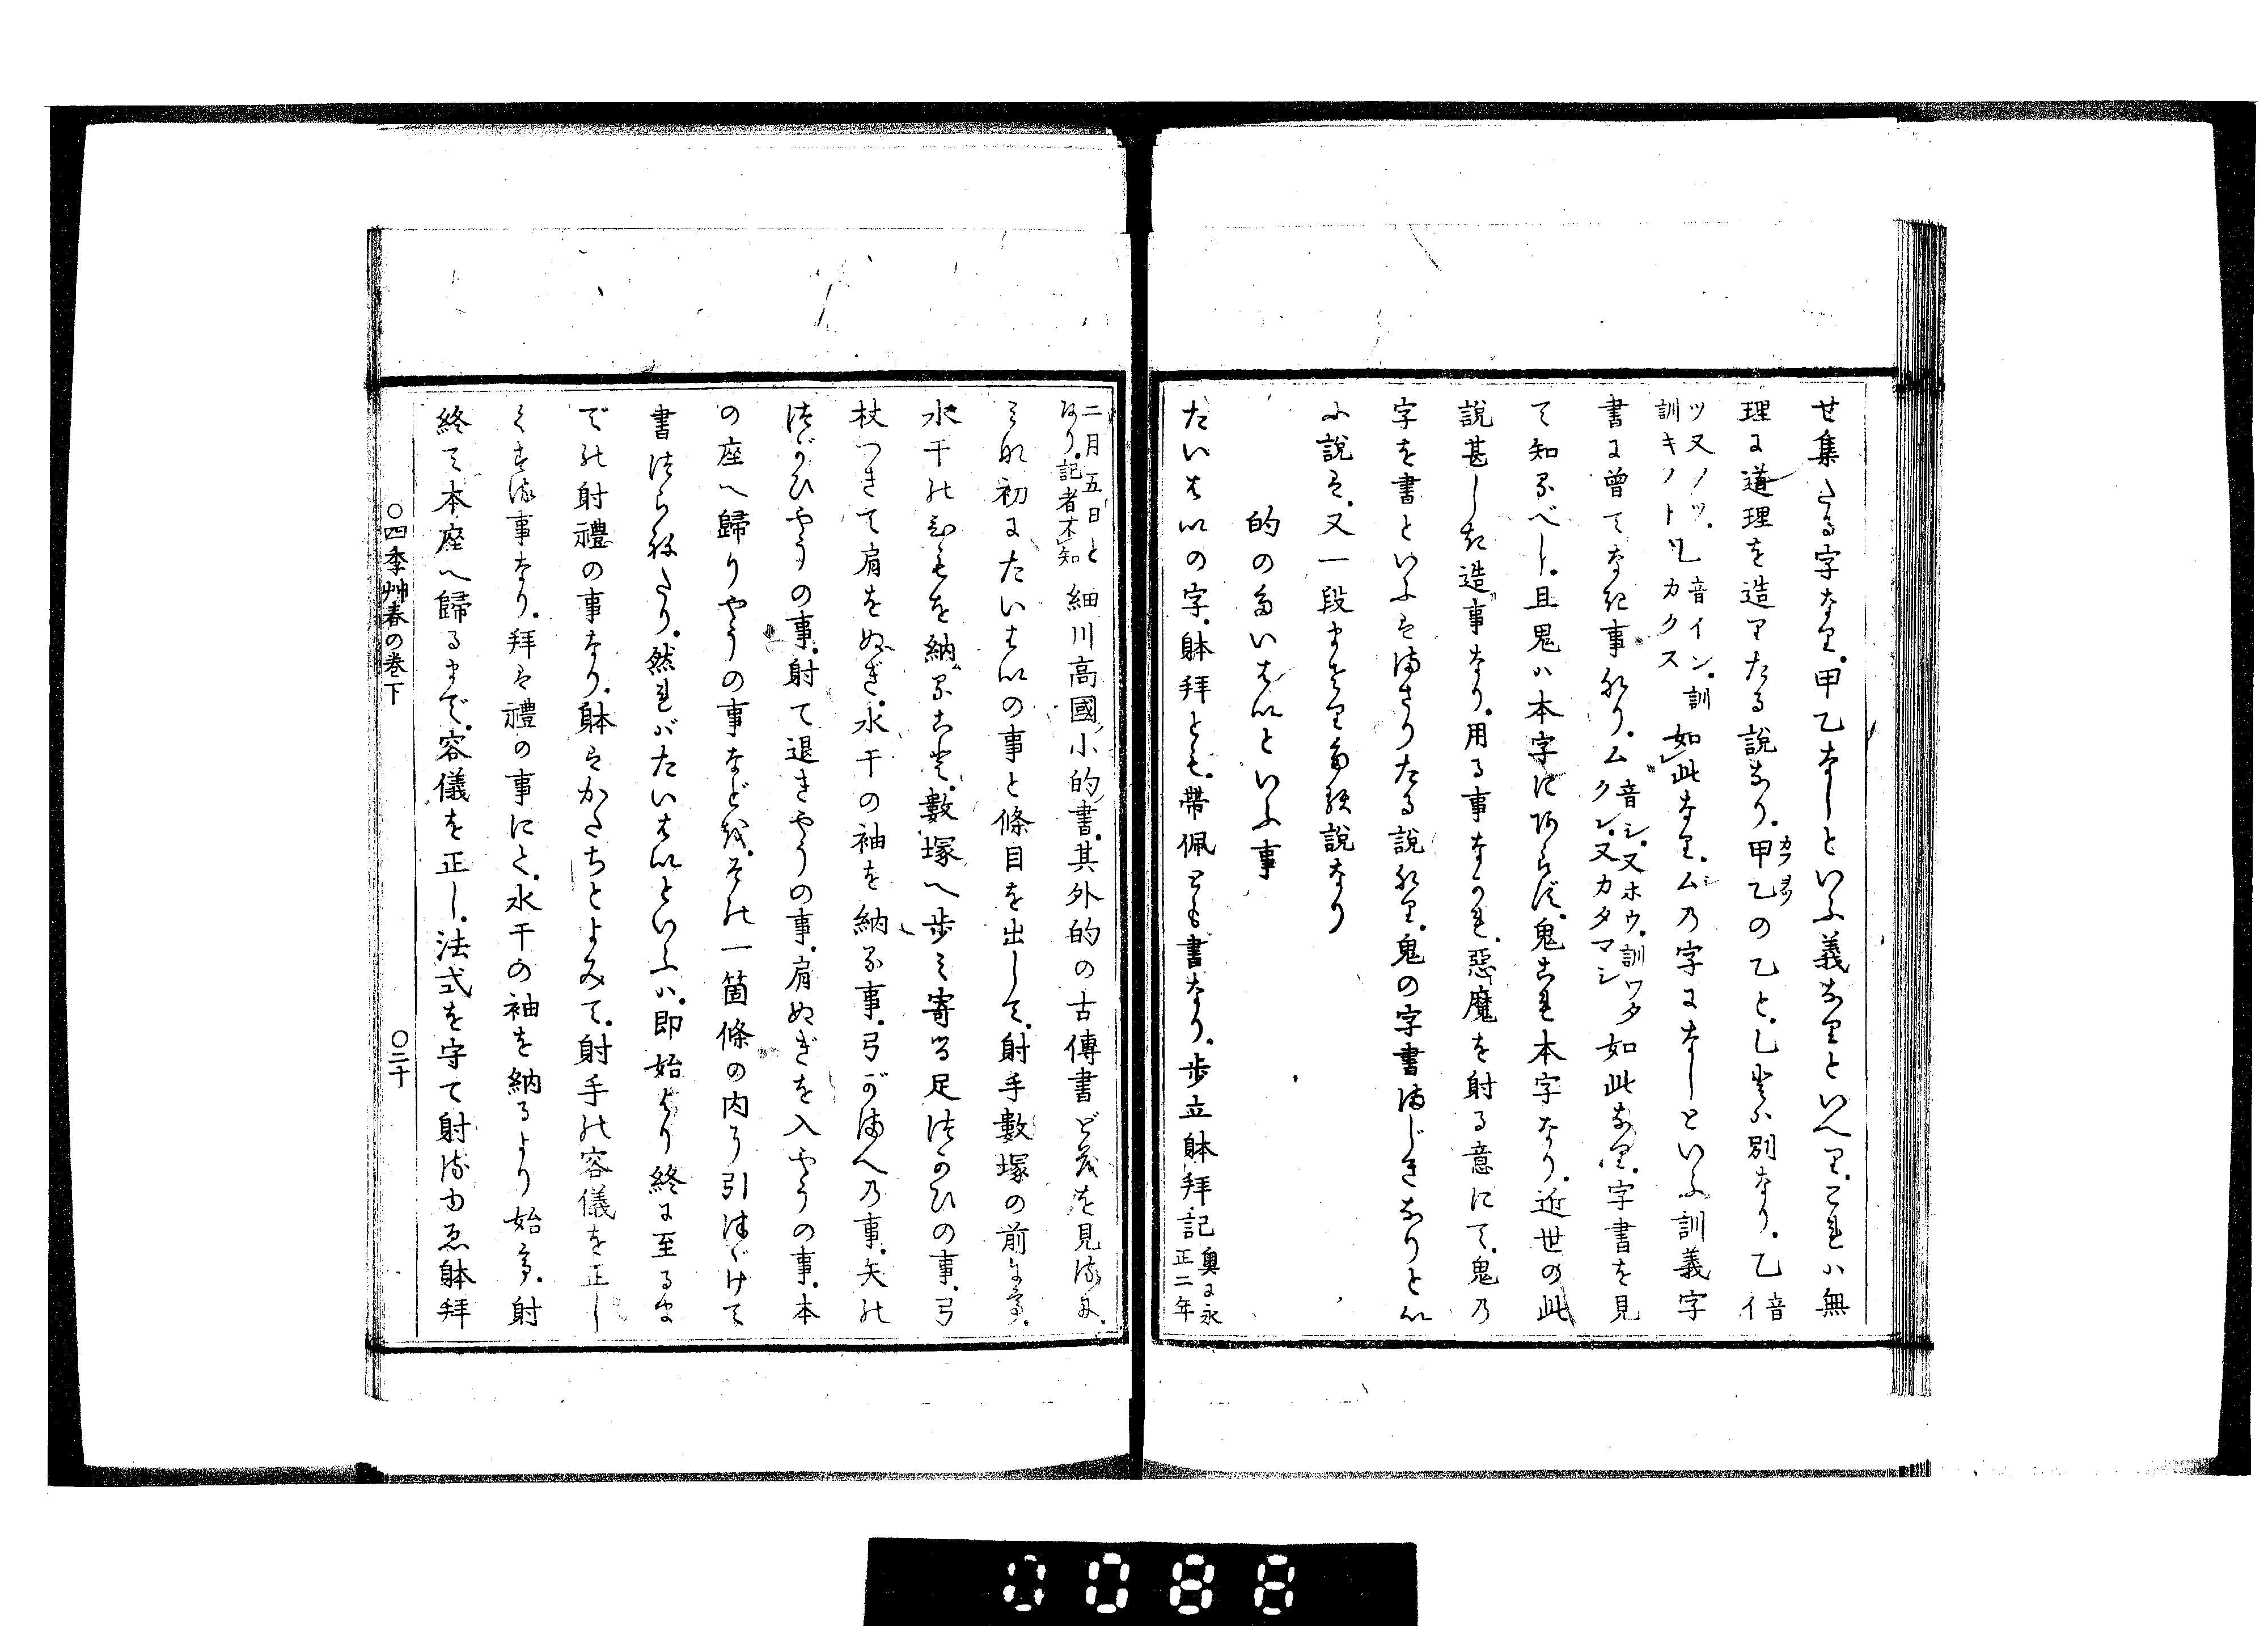 せ集たる字なり。甲乙なしといふ義なりといへり。これハ無
理に道理を造りたる説なり。甲乙の乙と。乚とハ別なり。乙音イ
ツ又ノツ。訓キノト 乚音イン。訓カクス 如此なり。ムの字になしといふ訓義字
書に曾てなき事なり。ム音シ。又ホウ。訓ワタクシ。又カタマシ 如此なり。字書を見
て知るべし。且鬼ハ本字にあらず。鬼これ本字なり。近世の此
説甚しき造事なり。用る事なかれ。惡魔を射る意にて。鬼の
字を書といふもまさりたる説なり。鬼の字書まじきなりとい
ふ説も。又一段まされる説なり
的のたいはいといふ事
たいはいの字。躰拜とも。帶佩とも書なり。歩立躰拜記奥に永正二年
二月五日となり。記者不知 細川高國小的書。其外的の古傳書どもを見るに。
みな初にたいはいの事と條目を出して。射手數塚の前に
水干のひもを納ること。數塚へ歩み寄る足づかひの事。弓
杖つきて肩をぬぎ。水干の袖を納る事。弓がまへの事。矢の
つがひやうの事。射て退きやうの事。肩ぬぎを入やうの事。本
の座へ歸りやうの事などを。その一箇條の内に引つゞけて
書つらねたり。然れバたいはいといふハ。即始より終に至るま
での射禮の事なり。躰はかたちとよみて。射手の容儀を正し
くする事なり。拜は禮の事にて。水干の袖を納るより始め。射
終て本座へ歸るまで。容儀を正し。法式を守て射るゆゑ躰拜
〇四季艸春の巻下
〇二十
0088